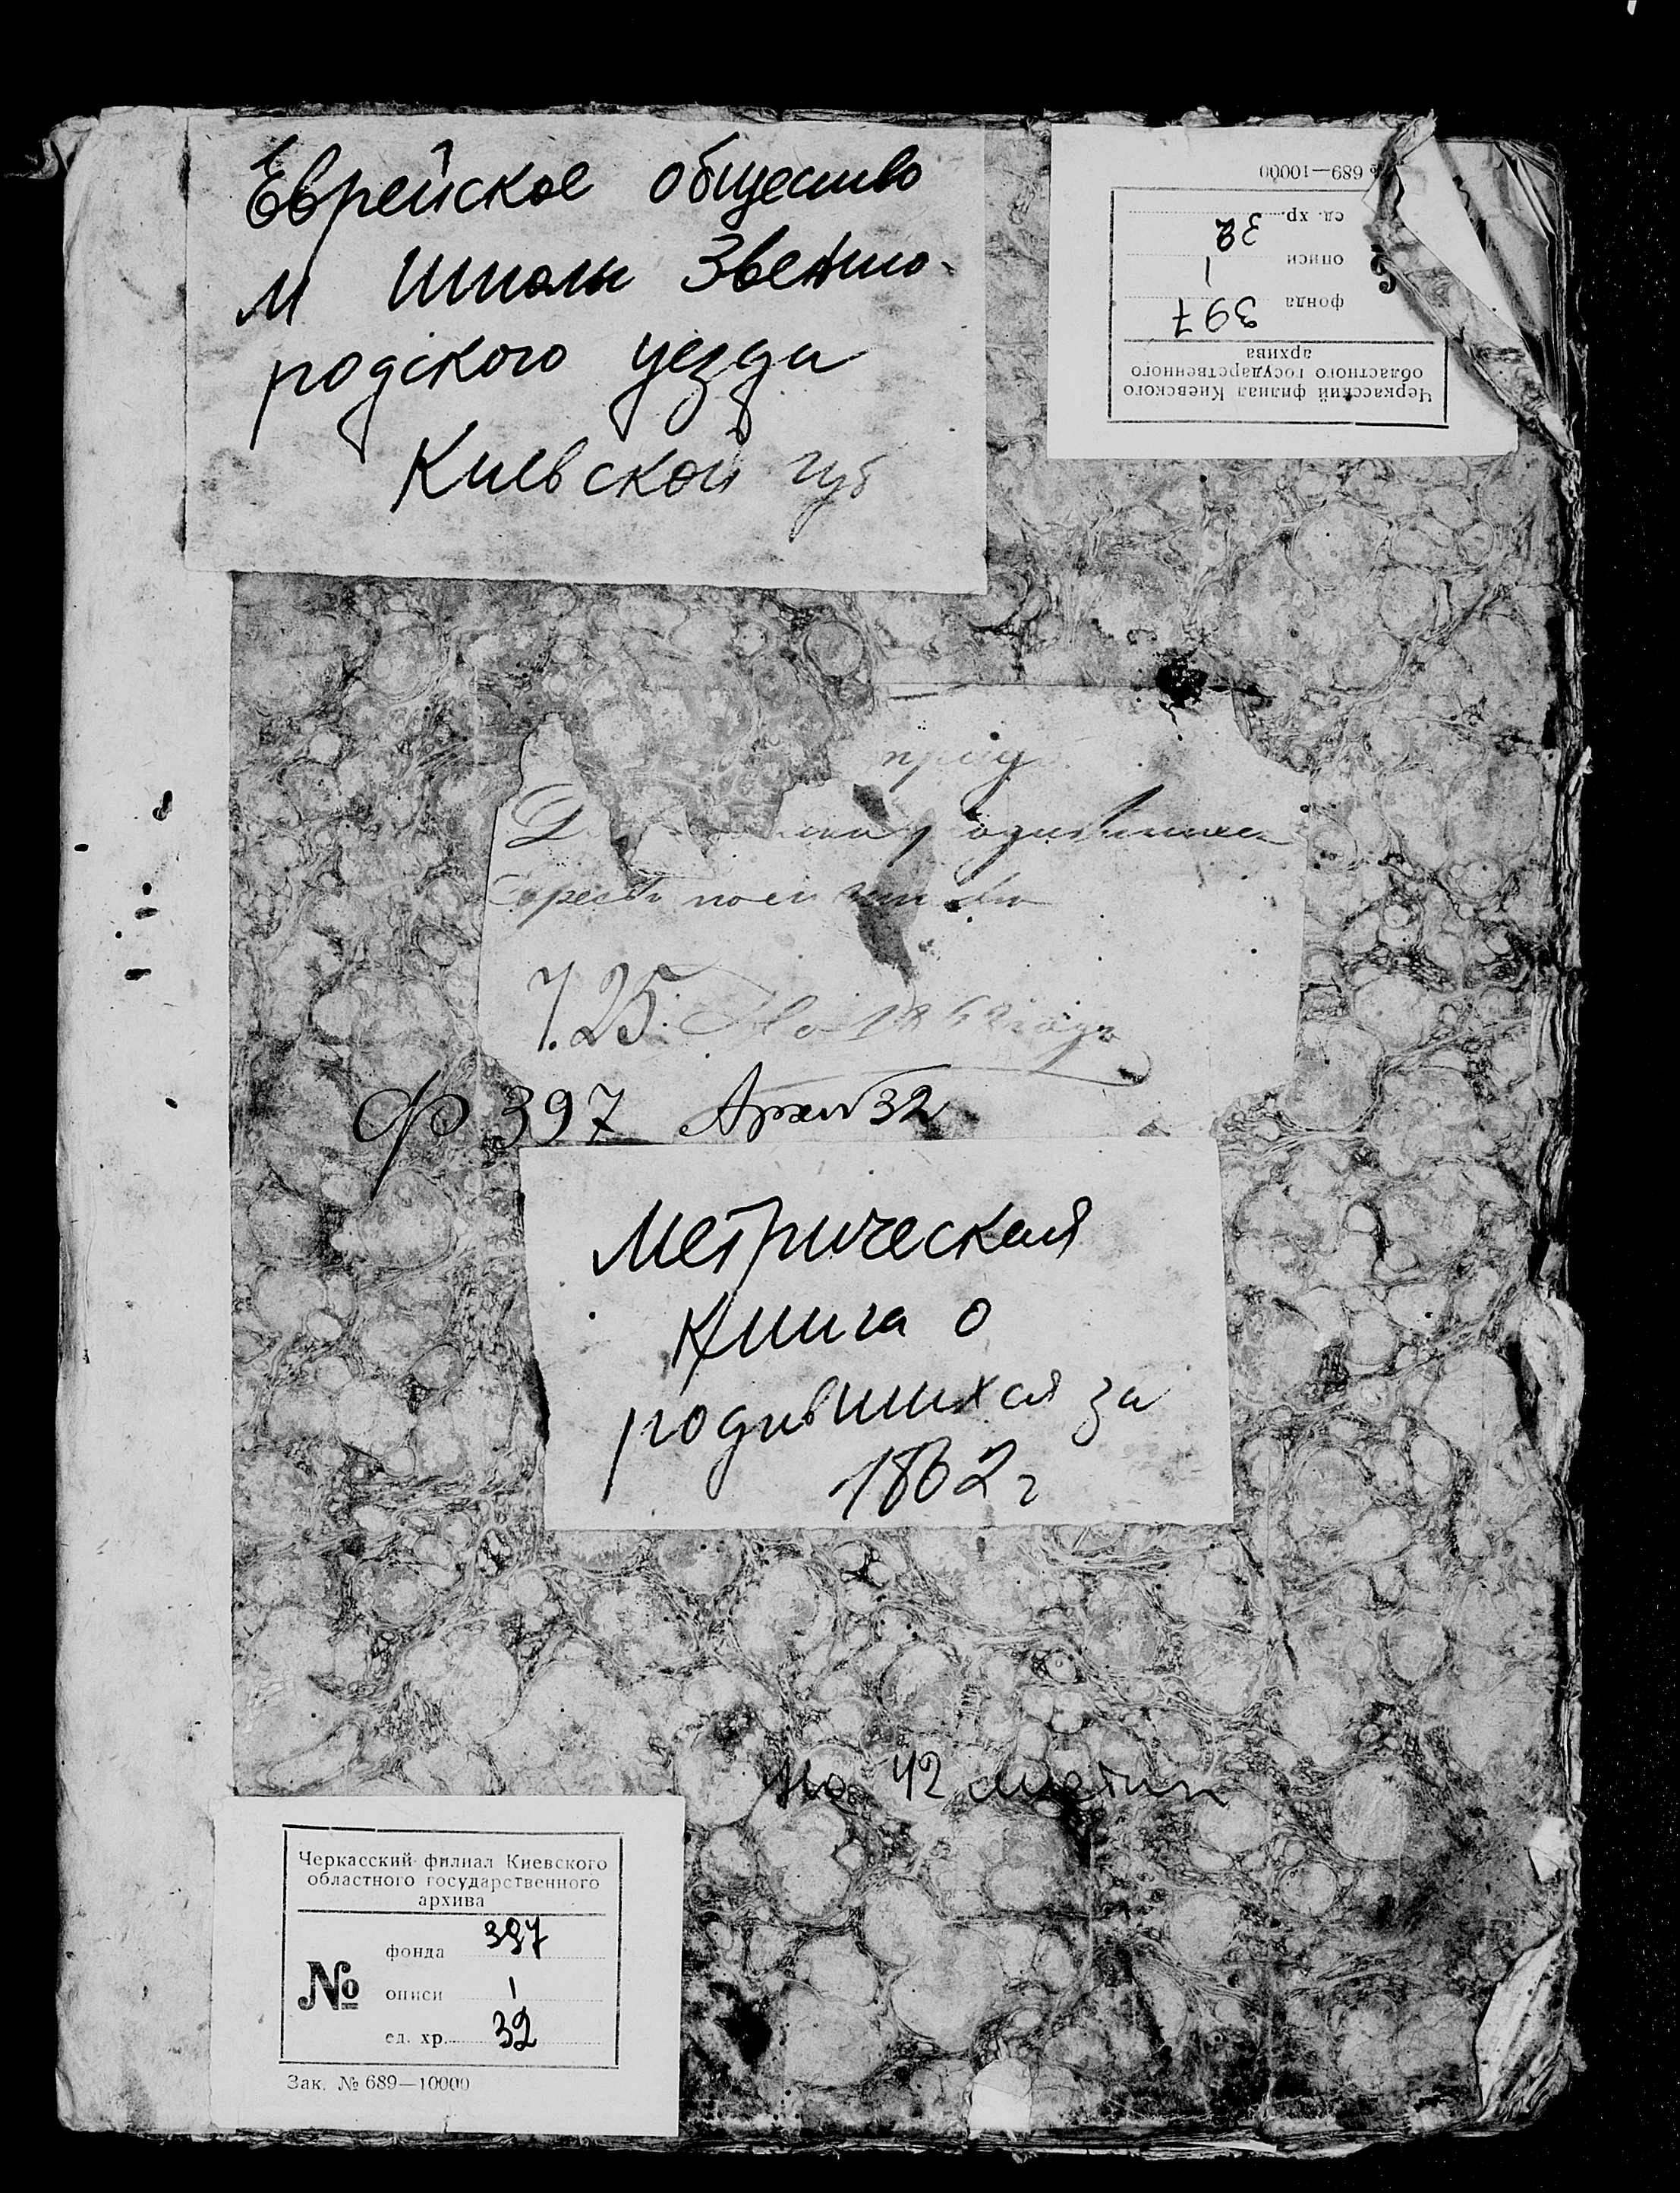 Еврейское общество
м Шполы Звениго-
родского уезда
Киевской губ
№ 689—10000
ед. хр. 32
описи 1
фонда 397
Черкасский филиал Киевского
областного государственного
архива
7.25. На 1862 годъ
Ф 397 Архив 32
Метрическая
книга о
родившихся за
1862 г
На 42 листах
Черкасский филиал Киевского
областного государственного
архива
№
фонда 397
описи 1
ед. хр. 32
Зак. № 689—10000